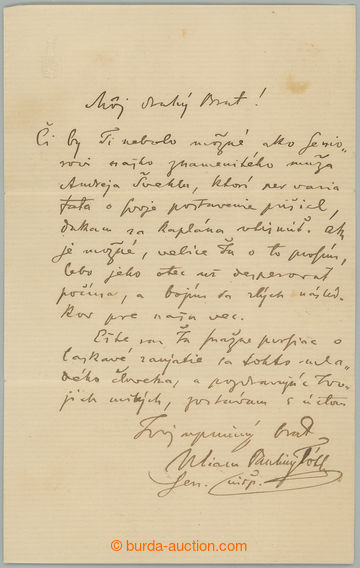 Môj drahý Brat!
Či by Ti nebolo možné ako Senio-
rovi nášho znamenitého muža
Andreja Švehlu, ktorí per varia
fata o svoje postavenie prišiel,
za kaplána ak
je možné, velice Ťa o to prosím,
lebo jeho otec už desperovať
počína, a bojím sa zlých násled-
kov pre našu vec.
Ešte raz Ťa snažne prosím o
laskavé zaujatie sa tohto mla-
dého človeka, a pozdravujúc Tvo-
jich milých, zostávam s úctou
Tvoj úprimný brat
Viliam Pauliny Tóth
Sen.
© burda-auction.com